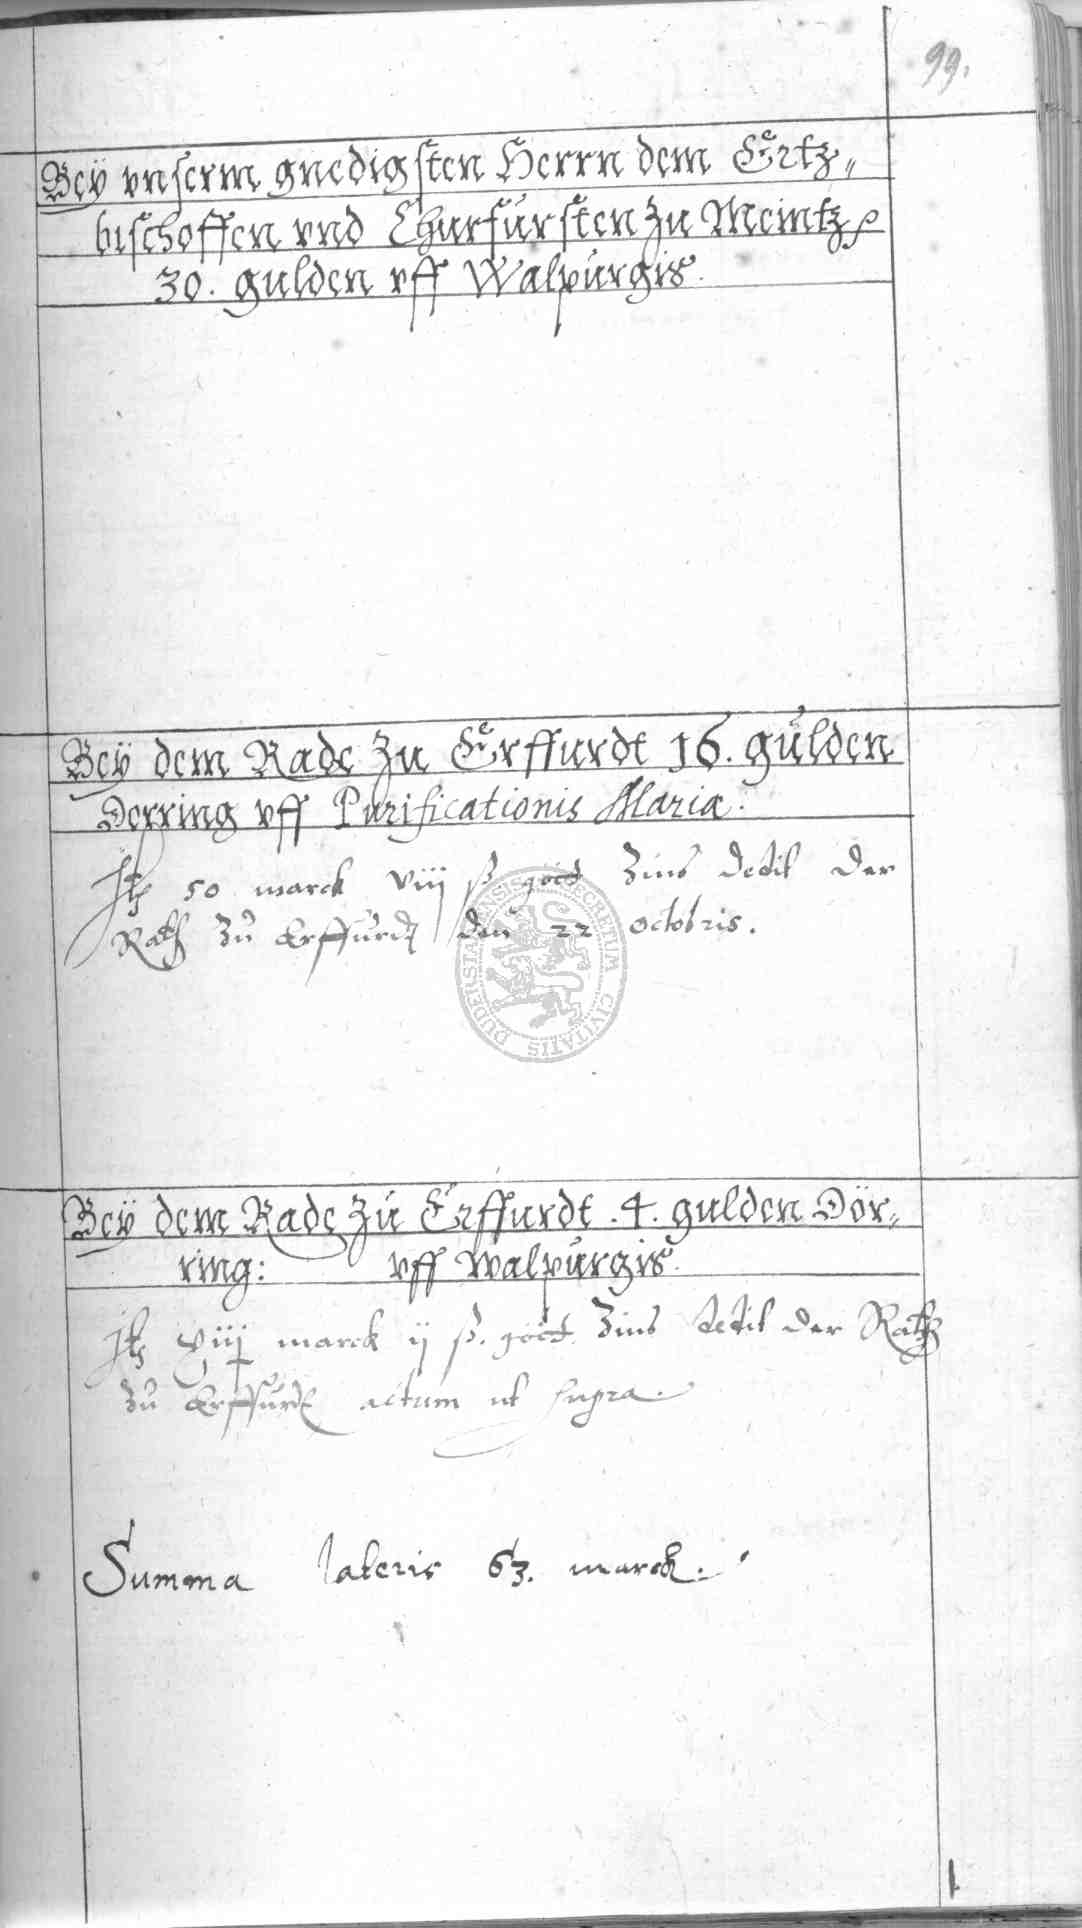 99.
Beÿ vnserm gnedigsten Herrn dem Ertz„
bischoffen vnd Churfürsten zu Meintz
30. gulden vff Walpurgis.
Beÿ dem Rade zu Erffurdt 16. gulden
Dorring vff Purificationis Maria.
50 marck viii ß gött zins dedit der
Rath zu Erffurdt den 22 octobris.
DUDERSTADENSIS SECRETUM CIVITATIS
Beÿ dem Rade zu Erffurdt .4. gulden Dör„
ring: vff walpurgis.
viij marck ij ß. gött. zins dedit der Rath
zu Erffurdt actum ut supra.
Summa lateris 63. marck.